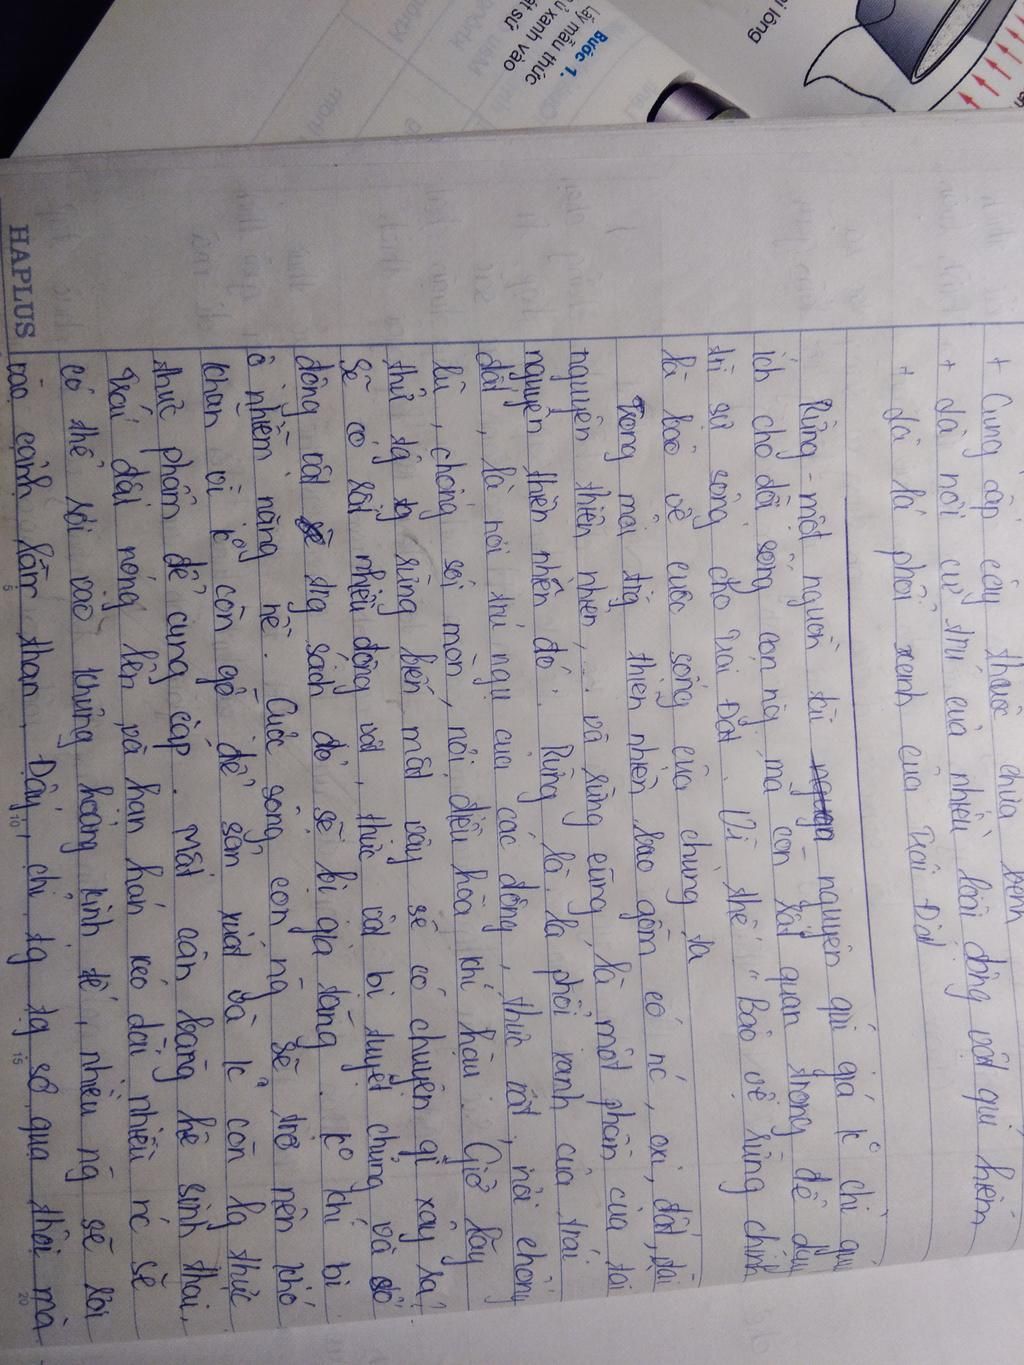 + Cung cấp cây thuốc chữa bệnh
+ Là nơi cư trú của nhiều loài động vật quí hiếm
+ Là lá phổi xanh của Trái Đất
Rừng - một nguồn tài nguyên quí giá k° chỉ giúp
ích cho đời sống con ng, mà còn rất quan trọng để duy
trì sự sống cho Trái Đất. Vì thế " Bảo vệ rừng chính
là bảo vệ cuộc sống của chúng ta
Trong môi trg thiên nhiên, bao gồm có nc, oxi, đất, tài
nguyên thiên nhiên,... và rừng cũng là một phần của tài
nguyên thiên nhiên đó. Rừng là lá phổi xanh của trái
đất, là nơi trú ngụ của các động, thực vật, nơi chống
lũ, chống sói mòn, nơi điều hòa khí hậu. Giờ hãy
thử tg tg rừng biến mất vậy sẽ có chuyện gì xảy ra?
Sẽ có rất nhiều động vật, thực vật bị tuyệt chủng và số
động vật trg sách đỏ sẽ bị gia tăng. k° khí bị
ô nhiễm nặng nề. Cuộc sống con ng sẽ trở nên khó
khăn vì k° còn gỗ để sản xuất và k° còn lg thực
thực phẩm để cung cấp. Mất cân bằng hệ sinh thái,
trái đất nóng lên và hạn hán kéo dài nhiều nc sẽ
có thể rơi vào khủng hoảng kinh tế, nhiều ng sẽ rơi
vào cảnh lầm than. Đấy, chỉ tg tg sơ qua thôi mà
HAPLUS
5
10
15
20
Bước 1.
Lấy mẫu thức
ủ xanh vào
ất sứ
i lòng